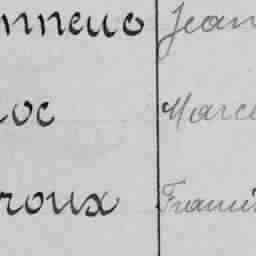 nneuo Jean
oc Marce
roux Franci